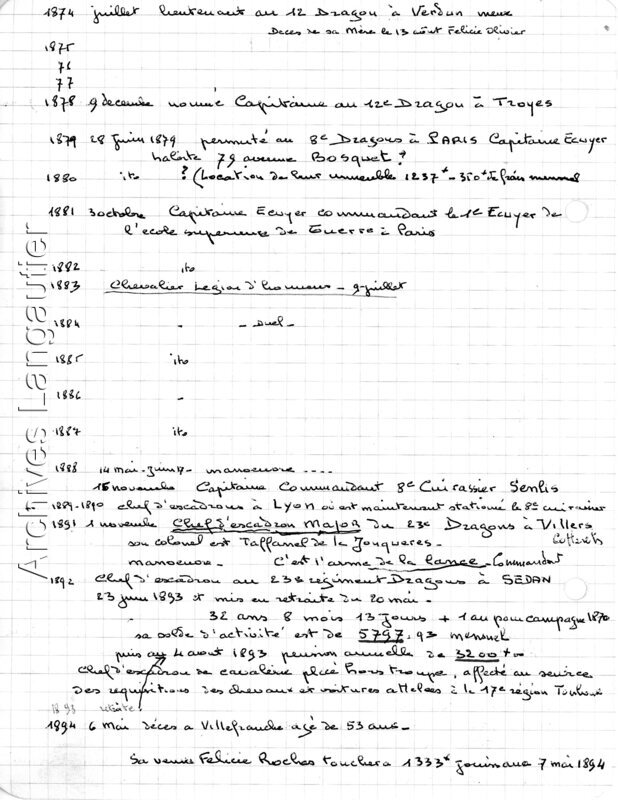 1874 juillet lieutenant au 12 Dragon à Verdun
Deces de sa Mère le 13 août Felicie Olivier
1875
76
77
1878 9 decembre nommé Capitaine au 12e Dragon à Troyes
1879 28 Juin 1879 permuté au 8e Dragons à PARIS Capitaine Ecuyer
habite 79 avenue Bosquet ?
1880 ito ? (Location de leur immeuble 1237 - 350 de frais mensuel
1881 3 octobre Capitaine Ecuyer commandant le 1e Ecuyer de
l'ecole superieure de Guerre à Paris
1882 ito
1883 Chevalier Legion d'honneur - 9 juillet
1884 - - Duel -
1885 ito
1886 -
1887 ito
1888 14 mai - Juin - manoeuvre ....
15 novembre Capitaine Commandant 8e Cuirassier Senlis
1889-1890 chef d'escadrons à Lyon où est maintenant stationé le 8e cuirassier
1891 1 novembre Chef d'escadron Major du 23e Dragons à Villers
Cotterets
son colonel est Taffanel de la Jonqueres.
manoeuvre. C'est l'arme de la lance - Commandant
1892 Chef d'escadron au 23e régiment Dragons à SEDAN
23 juin 1893 mis en retraite du 20 mai -
32 ans 8 mois 13 jours + 1 an pour campagne 1870
sa solde d'activité est de 5797,93 mensuel
puis au 4 août 1893 pension annuelle de 3200
Chef d'escadron de cavalerie placé hors troupe, affecté au service
des requisitions des chevaux et voitures attelées à la 17e région Toulouse
1893 retraite
1894 6 Mai décés a Villefranche agé de 53 ans -
Sa veuve Felicie Roches touchera 1333 7 mai 1894
Archives Langautier